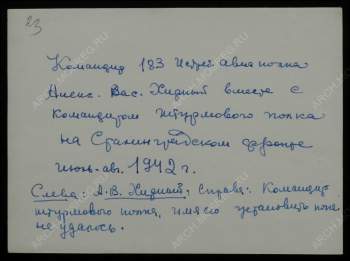 23
Командир 183 Истреб авиаполка
Анисис. Вас. Хидный вместе с
Командиром штурмового полка
на Сталинградском фронте
июль-авг. 1942 г.
Слева: А.В. Хидный, справа: Командир
штурмового полка, имя его установить пока
не удалось.